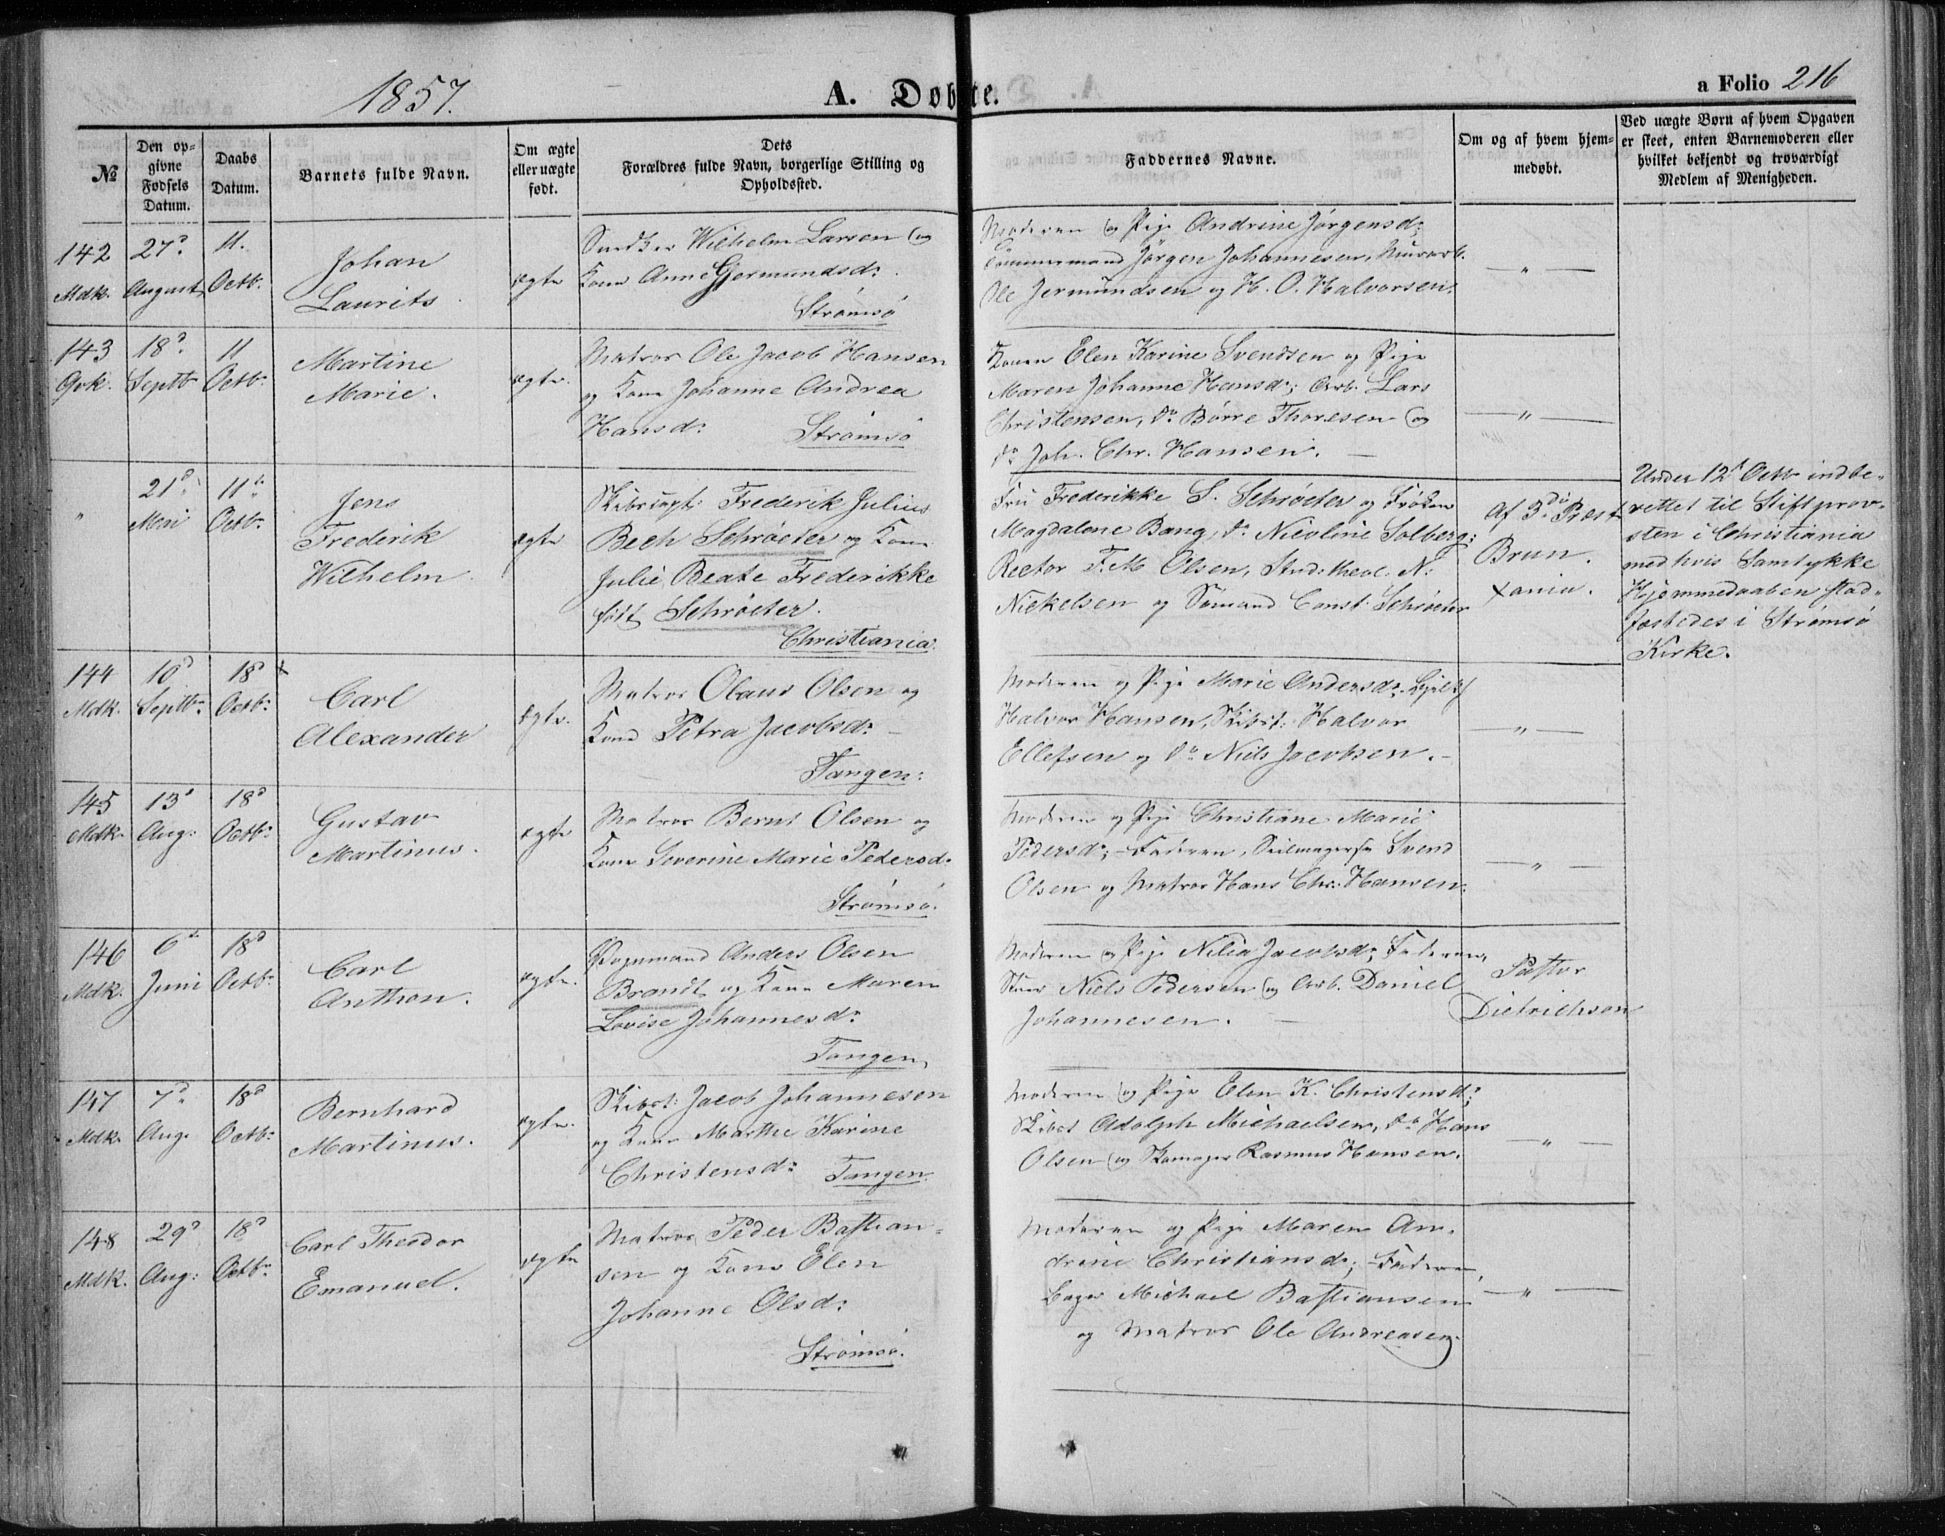 1857.
A. Döbte.
a Folio 216
№
Den op-
givne
Fødsels
Datum.
Daabs
Datum.
Barnets fulde Navn.
Om ægte
eller uægte
født.
Dets
Forældres fulde Navn, borgerlige Stilling og
Opholdssted.
Faddernes Navne.
Om og af hvem hjem-
medøbt.
Ved uægte Børn af hvem Opgaven
er skeet, enten Barnemoderen eller
hvilket bekjendt og troværdigt
Medlem af Menigheden.
142
Mdk.
27d
August
11.
Octb.
Johan
Laurits
ægte
Wilhelm Larsen og
Kone Anne Gjermundsd:
Strømsø
Moderen og Pige Andrine Jørgensd:
Tømmermand Jörgen Johannesen,
Ole Jermundsen og H. O. Halvorsen.
— " —
143
Gvk.
18d
Septb
11
Octb:
Martine
Marie.
ægte.
Matros Ole Jacob Hansen
og Kone Johanne Andrea
Hansd: Strømsø
Konen Elen Karine Svendsen og Pige
Maren Johanne Hansd:; Arb. Lars
Christensen, do Börre Thoresen og
do Joh. Chr. Hansen. —
— " —
"
21d
Mai
11t
Octb:
Jens
Frederik
Wilhelm
ægte
Skibscapt: Frederik Julius
Bech Schröeter og Kone
Julie Beate Frederikke
født Schröeter.
Christiania:
Fru Frederikke S. Schröeter og Frøken
Magdalene Bang, do Nicoline Solberg;
Rector F. M. Olsen, Stud: theol. N:
Nickelsen og Sømand Const: Schröeter
Af Præst
Brun.
Xania.
Under 12t Octb indbe-
rettet til Stiftprov-
sten i Christiania
med hvis Samtykke
Hjemmedaaben stad-
fæstedes i Strømsø
Kirke.
144
Mdk.
10d
Septbr
18d
Octb:
Carl
Alexander
ægte.
Matros Olaus Olsen og
Kone Petra Jacobsd: —
Tangen:
Moderen og Pige Marie Andersd:
Halvor Hansen, Skibst: Halvor
Ellefsen og do Niels Jacobsen. —
— " —
145
Mdk.
13d
Aug:
18d
Octb:
Gustav
Martinus.
ægte
Matros Bernt Olsen og
Kone Severine Marie Pedersd:
Strømsø.
Moderen og Pige Christiane Marie
Pedersd:; Faderen, Seilmagersv Svend
Olsen og Matros Hans Chr: Hansen:
— " —
146
Mdk.
6t
Juni
18d
Octb:
Carl
Anthon.
ægte.
Vognmand Anders Olsen
Brandt og Kone Maren
Lovise Johannesd:
Tangen,
Moderen og Pige Nilia Jacobsd; Faderen,
Niels Pedersen og Arb. Daniel
Johannesen. —
Pastor
Dietrichson
147
Mdk.
7d
Aug.
18d
Octb:
Bernhard
Martinus.
ægte.
Skibst: Jacob Johannesen
og Kone Marthe Karine
Christensd: Tangen
Moderen og Pige Elen K. Christensd:;
Skibst Adolph Michaelsen, do Hans
Olsen og Skomager Rasmus Hansen.
— " —
148
Mdk.
29d
Aug:
18d
Octb:
Carl Theodor
Emanuel.
ægte
Matros Peder Bastian-
sen og Kone Elen
Johanne Olsd:
Strømsø.
Moderen og Pige Maren An-
drine Christiansd:; Faderen,
Bager Michael Bastiansen
og Matros Ole Andreasen.
— " —